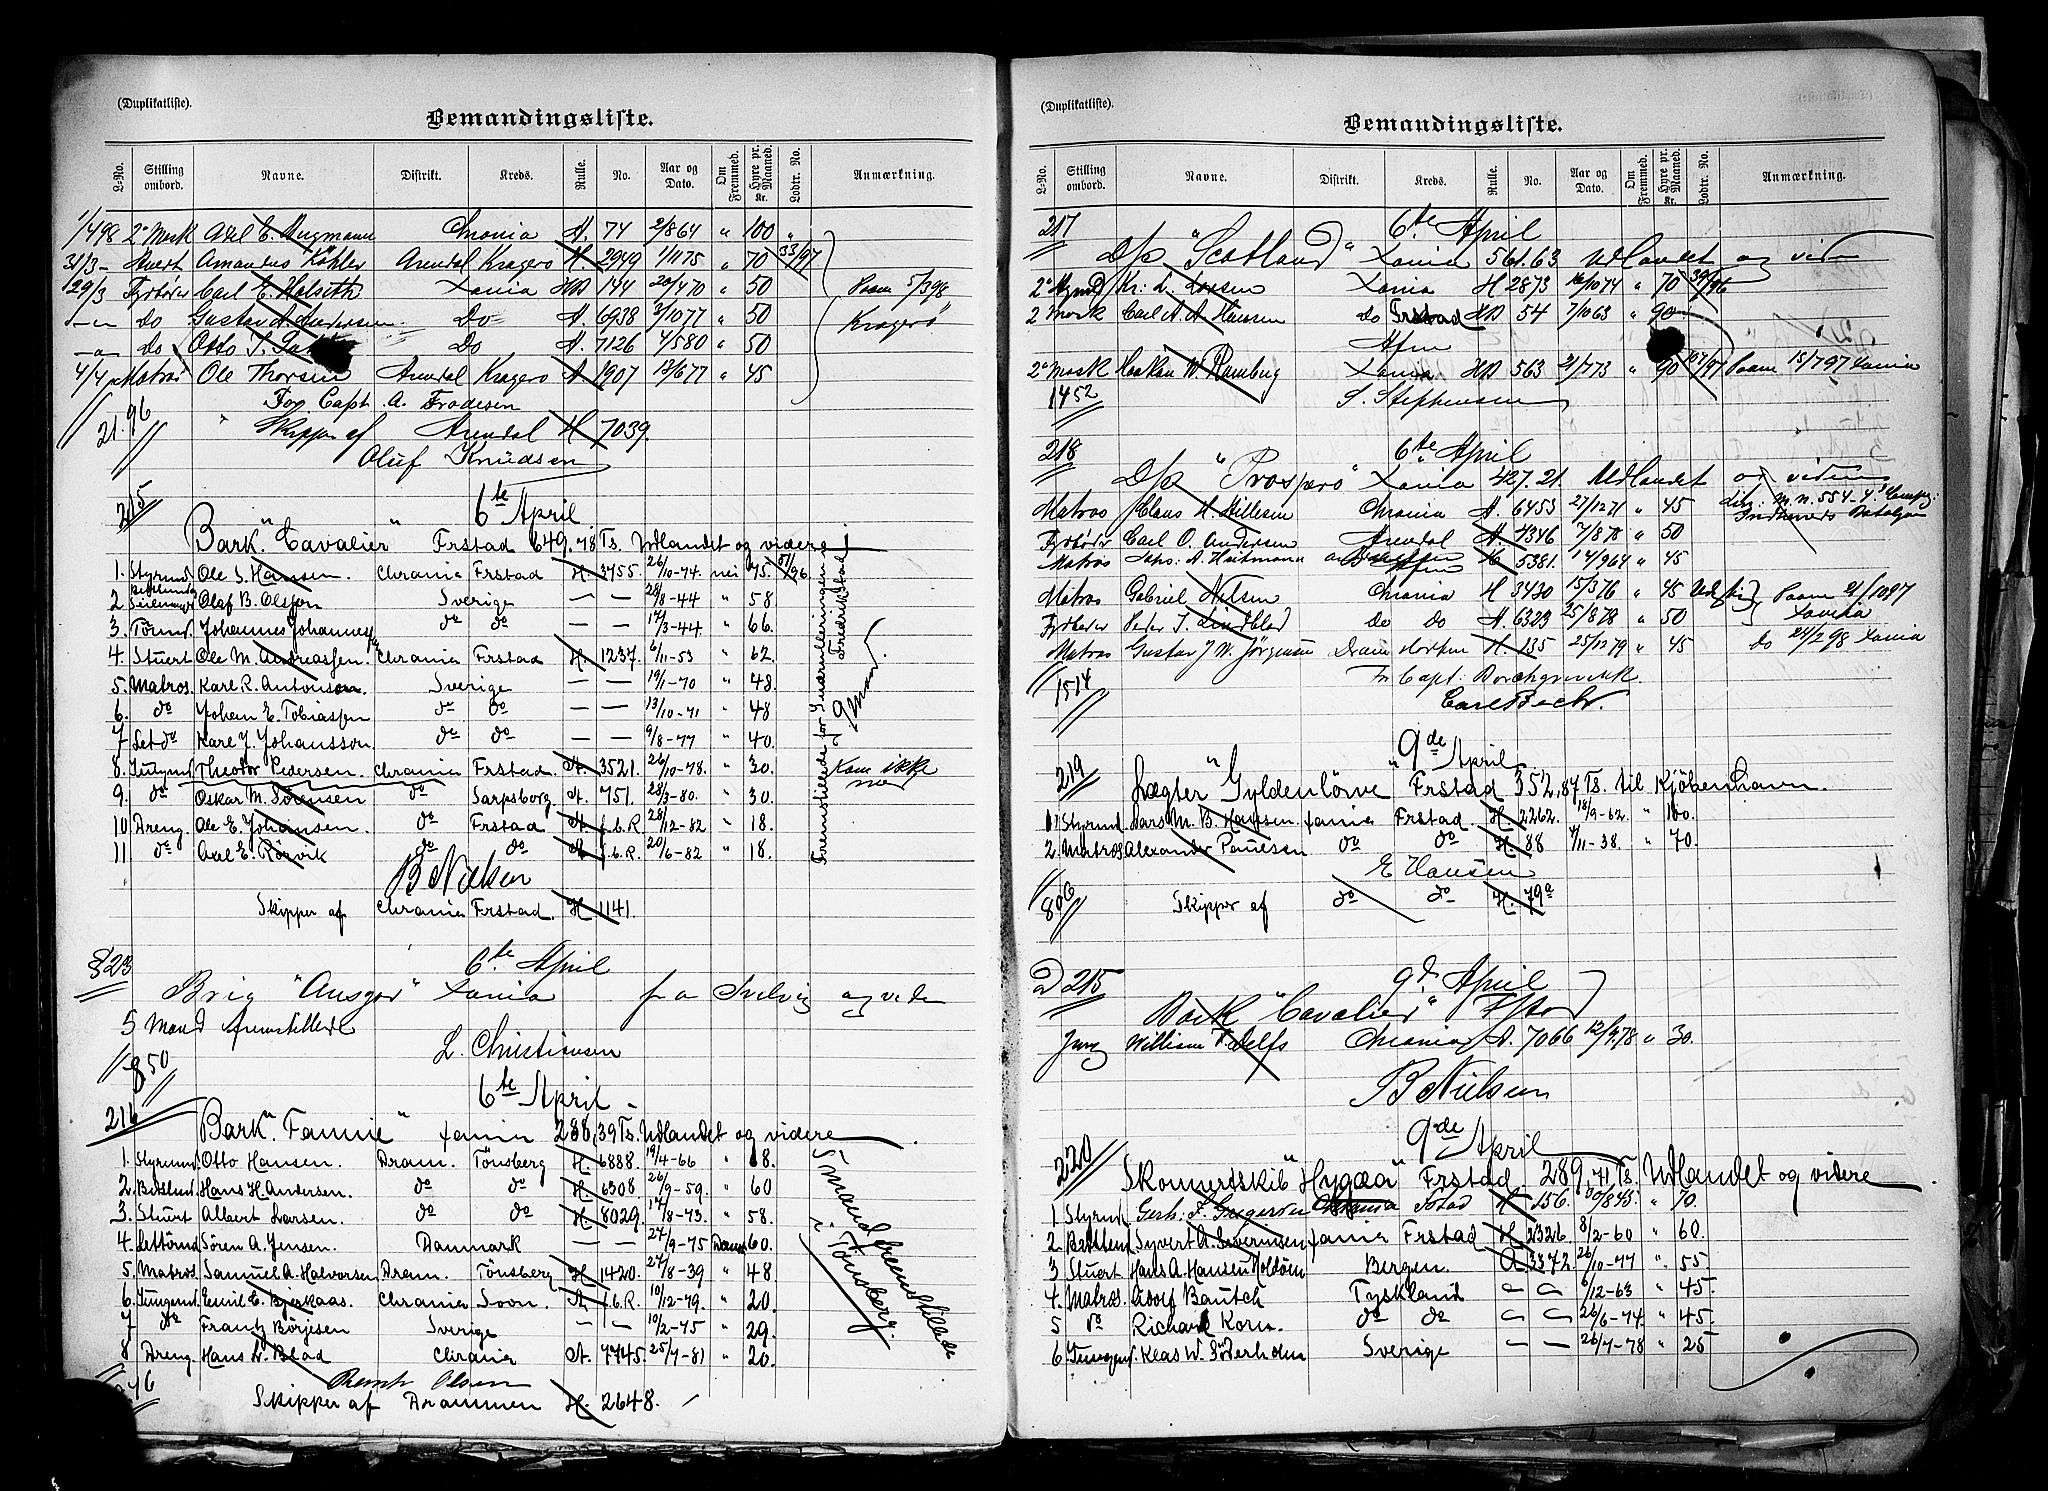 (Duplikatliste).
Bemandingsliste.
L-No. Stilling ombord. Navne. Distrikt. Kreds. Rulle. No. Aar og Dato. Om Fremmed. Hyre pr. Maaned. Kr. Lodtr. No. Anmærkning.
1/4 98 2' Mask Axel E. Chrania A. 74 2/8 64 " 100 "
31/3 - Stuert Amandus Köhler Arendal Kragerö H. 2949 1/11 75 " 70 33/97
29/3 Fyrböder Carl E. Halseth Xania HB 144 20/4 70 " 50 Paam 5/3 98
Do Gustav A. Andersen Do A. 6938 3/10 77 " 50 Kragerö
Do Otto T. Do A. 7126 4/5 80 " 50
4/4 Matros Ole Thorsen Arendal Kragerö A 1907 13/6 77 " 45
For Capt. A. Frodesen
21.96 Skipper af Arendal H 7039.
Oluf Knudsen
215 6te April
Bark "Cavalier" Frstad 649.78 Ts. Udlandet og videre
1. Styrmd Ole S. Hansen. Chrania Frstad H. 3755. 26/10-74. nei 75. 51/96
2 Seilmager Olaf B. Olsson Sverige — — 28/8-44 " 58
3. Tömmd. Johannes Johannessen do do — — 17/3-44. " 66.
4. Stuert Ole M. Andreassen. Chrania Frstad H. 1237. 6/11-53 " 62.
5. Matros. Karl R. Antonson. Sverige — — 19/1-70 " 48.
6. do Johan E. Tobiassen do do — — 13/10-71 " 48
7 Let do Karl J. Johansson do do — — 9/8-77 " 40.
8. Jungmd Theodor Pedersen. Chrania Frstad. A. 3521. 26/10-78. " 30. Kom ikke med
9. do Oskar M. Sörensen do Sarpsborg A. 751. 28/3-80. " 30.
10 Dreng. Ole E. Johansen. do Frstad A. f.b.R. 28/12-82 " 18.
11 do Axel E. Rörvik do do A f.b.R. 20/6-82 " 18.
Fremstillede for Smaamönstringen i Fredrikstad
B Nielsen
Skipper af Chrania Frstad. H 1141.
§ 23 6te April
Brig "Ansgar" Xania fra Svelvig og viden
5 Mand fremstillede
L. Christiansen
850
6te April
216 Bark "Fannie" Xania 288,39 Ts. Udlandet og videre
1. Styrmd. Otto Hansen. Dram. Tönsberg H. 6888. 19/4-66 " 8.
2. Hans H. Andersen. do do H 6308 26/9-59. " 60
3. Stuert Albert Larsen. do do H 8029. 17/8-73. " 58.
4. Lettömd Sören A. Jensen. Danmark — — 27/9-75 Dansk 60.
5. Matros Samuel A. Halvorsen Dram. Tönsberg H 1420. 27/8-39 " 48
6. Jungmd. Emil E. Bjerkaas. Chrania Soon. A f.b.R. 10/12-79. " 20.
7 do Frantz Börjesen Sverige — — 10/2-75 " 29.
8 Dreng. Hans L. Blad Chrania A. 7745. 25/7-81 " 20.
5 mand fremstillede i Tönsberg.
Bernt Olsen
Skipper af Drammen H. 2648.
(Duplikatliste).
Bemandingsliste.
L-No. Stilling ombord. Navne. Distrikt. Kreds. Rulle. No. Aar og Dato. Om Fremmed. Hyre pr. Maaned. Kr. Lodtr. No. Anmærkning.
217 6te April
D/s "Scotland" Xania 561.63 Udlandet og viden
2' Styrmd Kr. L. Larsen Xania H 2873 16/10 74 " 70 39/96
2 Mask Carl A. A. Hansen Do Frstad HB 54 7/10 63 " 90
Afm
2' Mask Haakon W. Ramberg Xania HB 563 21/7 73 " 90 107/97 Paam 15/7 97 Xania
1452 S. Stephensen
218 6te April
D/s "Prospero" Xania 427.21. Udlandet og viden
Matros Claus H. Nillesen Chrania A. 6453 27/12 71 " 45
Fyrböder Carl O. Andersen Arendal A. 4346 7/8 78 " 50
Matros A. Heitmann H 5381. 14/9 64 " 45
Matros Gabriel Nilsen Chrania H 3430 15/3 76 " 45 Paam 21/10 97 Xania
Fyrböder Peder T. Lindblad Do do A. 6323 25/8 78 " 50
Matros Gustav J W. Jörgensen Dram Horten H 135 25/12 79 " 45 Do 24/2 98 Xania
For Capt. Borchgrevink.
1514 Carl Becker.
219 9de April
Lægter "Gyldenlöve" Frstad 352,87 Ts. til Kjöbenhavn.
1 Styrmd Lars M. B. Hansen. Xania Frstad. H. 2262. 18/9-62. " 100.
2. Matros Alexander Paulsen do do H. 88 4/11-38. " 70.
E Hansen
Skipper af do do H. 79a
D 215 9d. April
Bark "Cavalier" Fstad
Jung William T. Delfs Chrania A. 7066 12/9 78 " 30.
B Nielsen
220 9de April
Skonnertskib "Hygæa" Frstad 289,71 Ts. Udlandet og videre
1 Styrmd. Gerh. F. Gregersen Chrania Fstad H 156. 30/8 45. " 70.
2. Syvert A. Severinsen Xania Frstad H 2326. 8/2-60 " 60.
3 Stuert Hans A. Hansen Holdöen Bergen. A 3372. 26/10-77 " 55
4. Matros. Adolf Bautch Tyskland — — 6/12-63 " 45.
5 do Richard Korn. do do — — 26/6-74. " 45.
6 Jungmd. Klas W. Söderholm Sverige — — 26/7-78 " 25